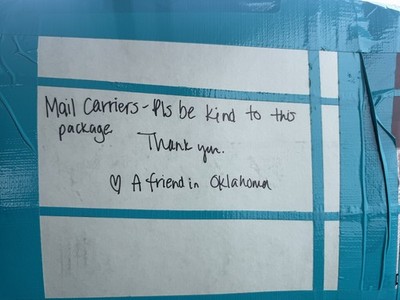 Mail Carriers - Pls be kind to this
package
Thank you.
♡ A friend in Oklahoma